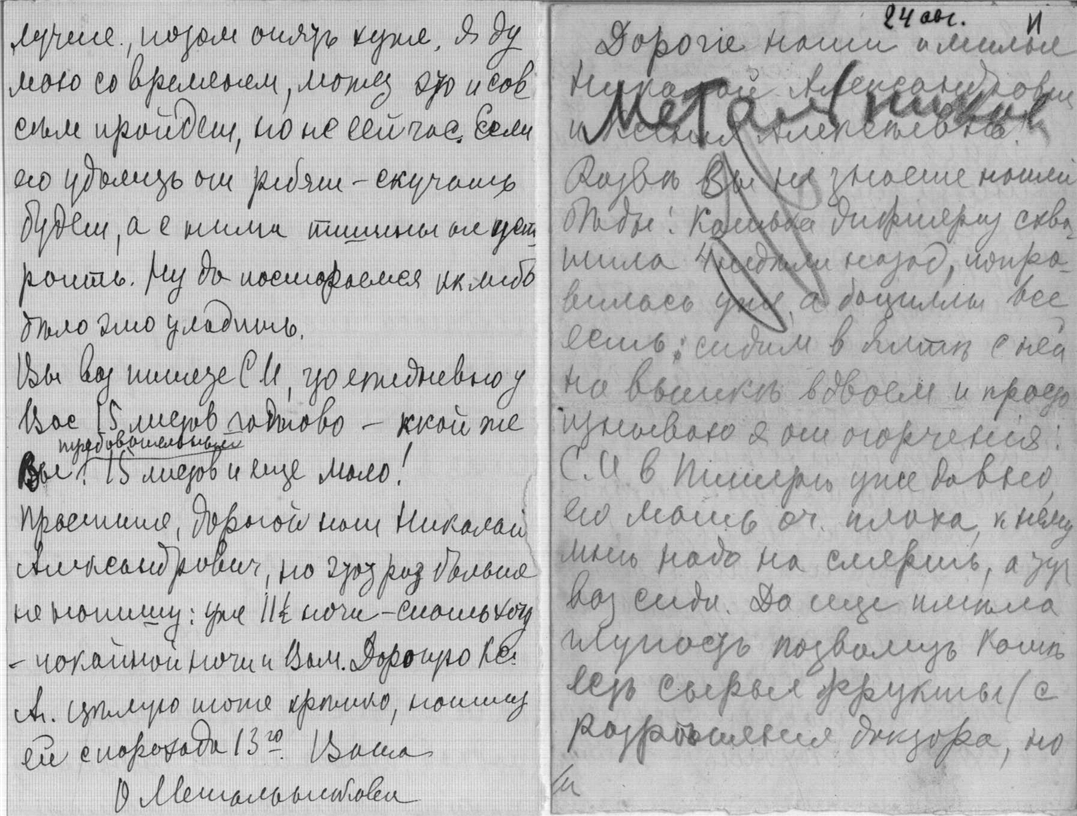 лучше, потом опять хуже. Я ду
маю со временем, может это и сов
сѣм пройдет, но не сейчас. Если
его удалить от ребят – скучать
будет, а с ними тишины не уст
роить. Ну да постараемся как либо
было это уладить.
Вы вот пишете С И, что ежедневно у
Вас 15 литров – какой же
требовательный
Вы! 15 литров и еще мало!
Простите, дорогой наш Николай
Александрович, но этот раз больше
не напишу: уже 11½ ночи – спать хочу
– покойной ночи и Вам. Дорогую Кс.
А. цѣлую тоже крѣпко, напишу
ей с парохода 13го Ваша
О Метальникова
24 авг.
Дорогіе наши и милые
Николай Александрович
Метальников
и Ксенія Алексѣевна!
Развѣ Вы не знаете нашей
бѣды: Катька дифтерит схва
тила 4 недѣли назад, попра
вилась уже, а бациллы все
есть; сидим в Ялтѣ с ней
на вышкѣ вдвоем и просто
изнываю я от огорченія:
С. И. в Питерѣ уже давно,
его мать оч. плоха, к нему
мнѣ надо на смерть, а тут
вот сиди. Да еще имѣла
глупость позволить Катѣ
ѣсть сырые фрукты (с
разрѣшенія доктора, но